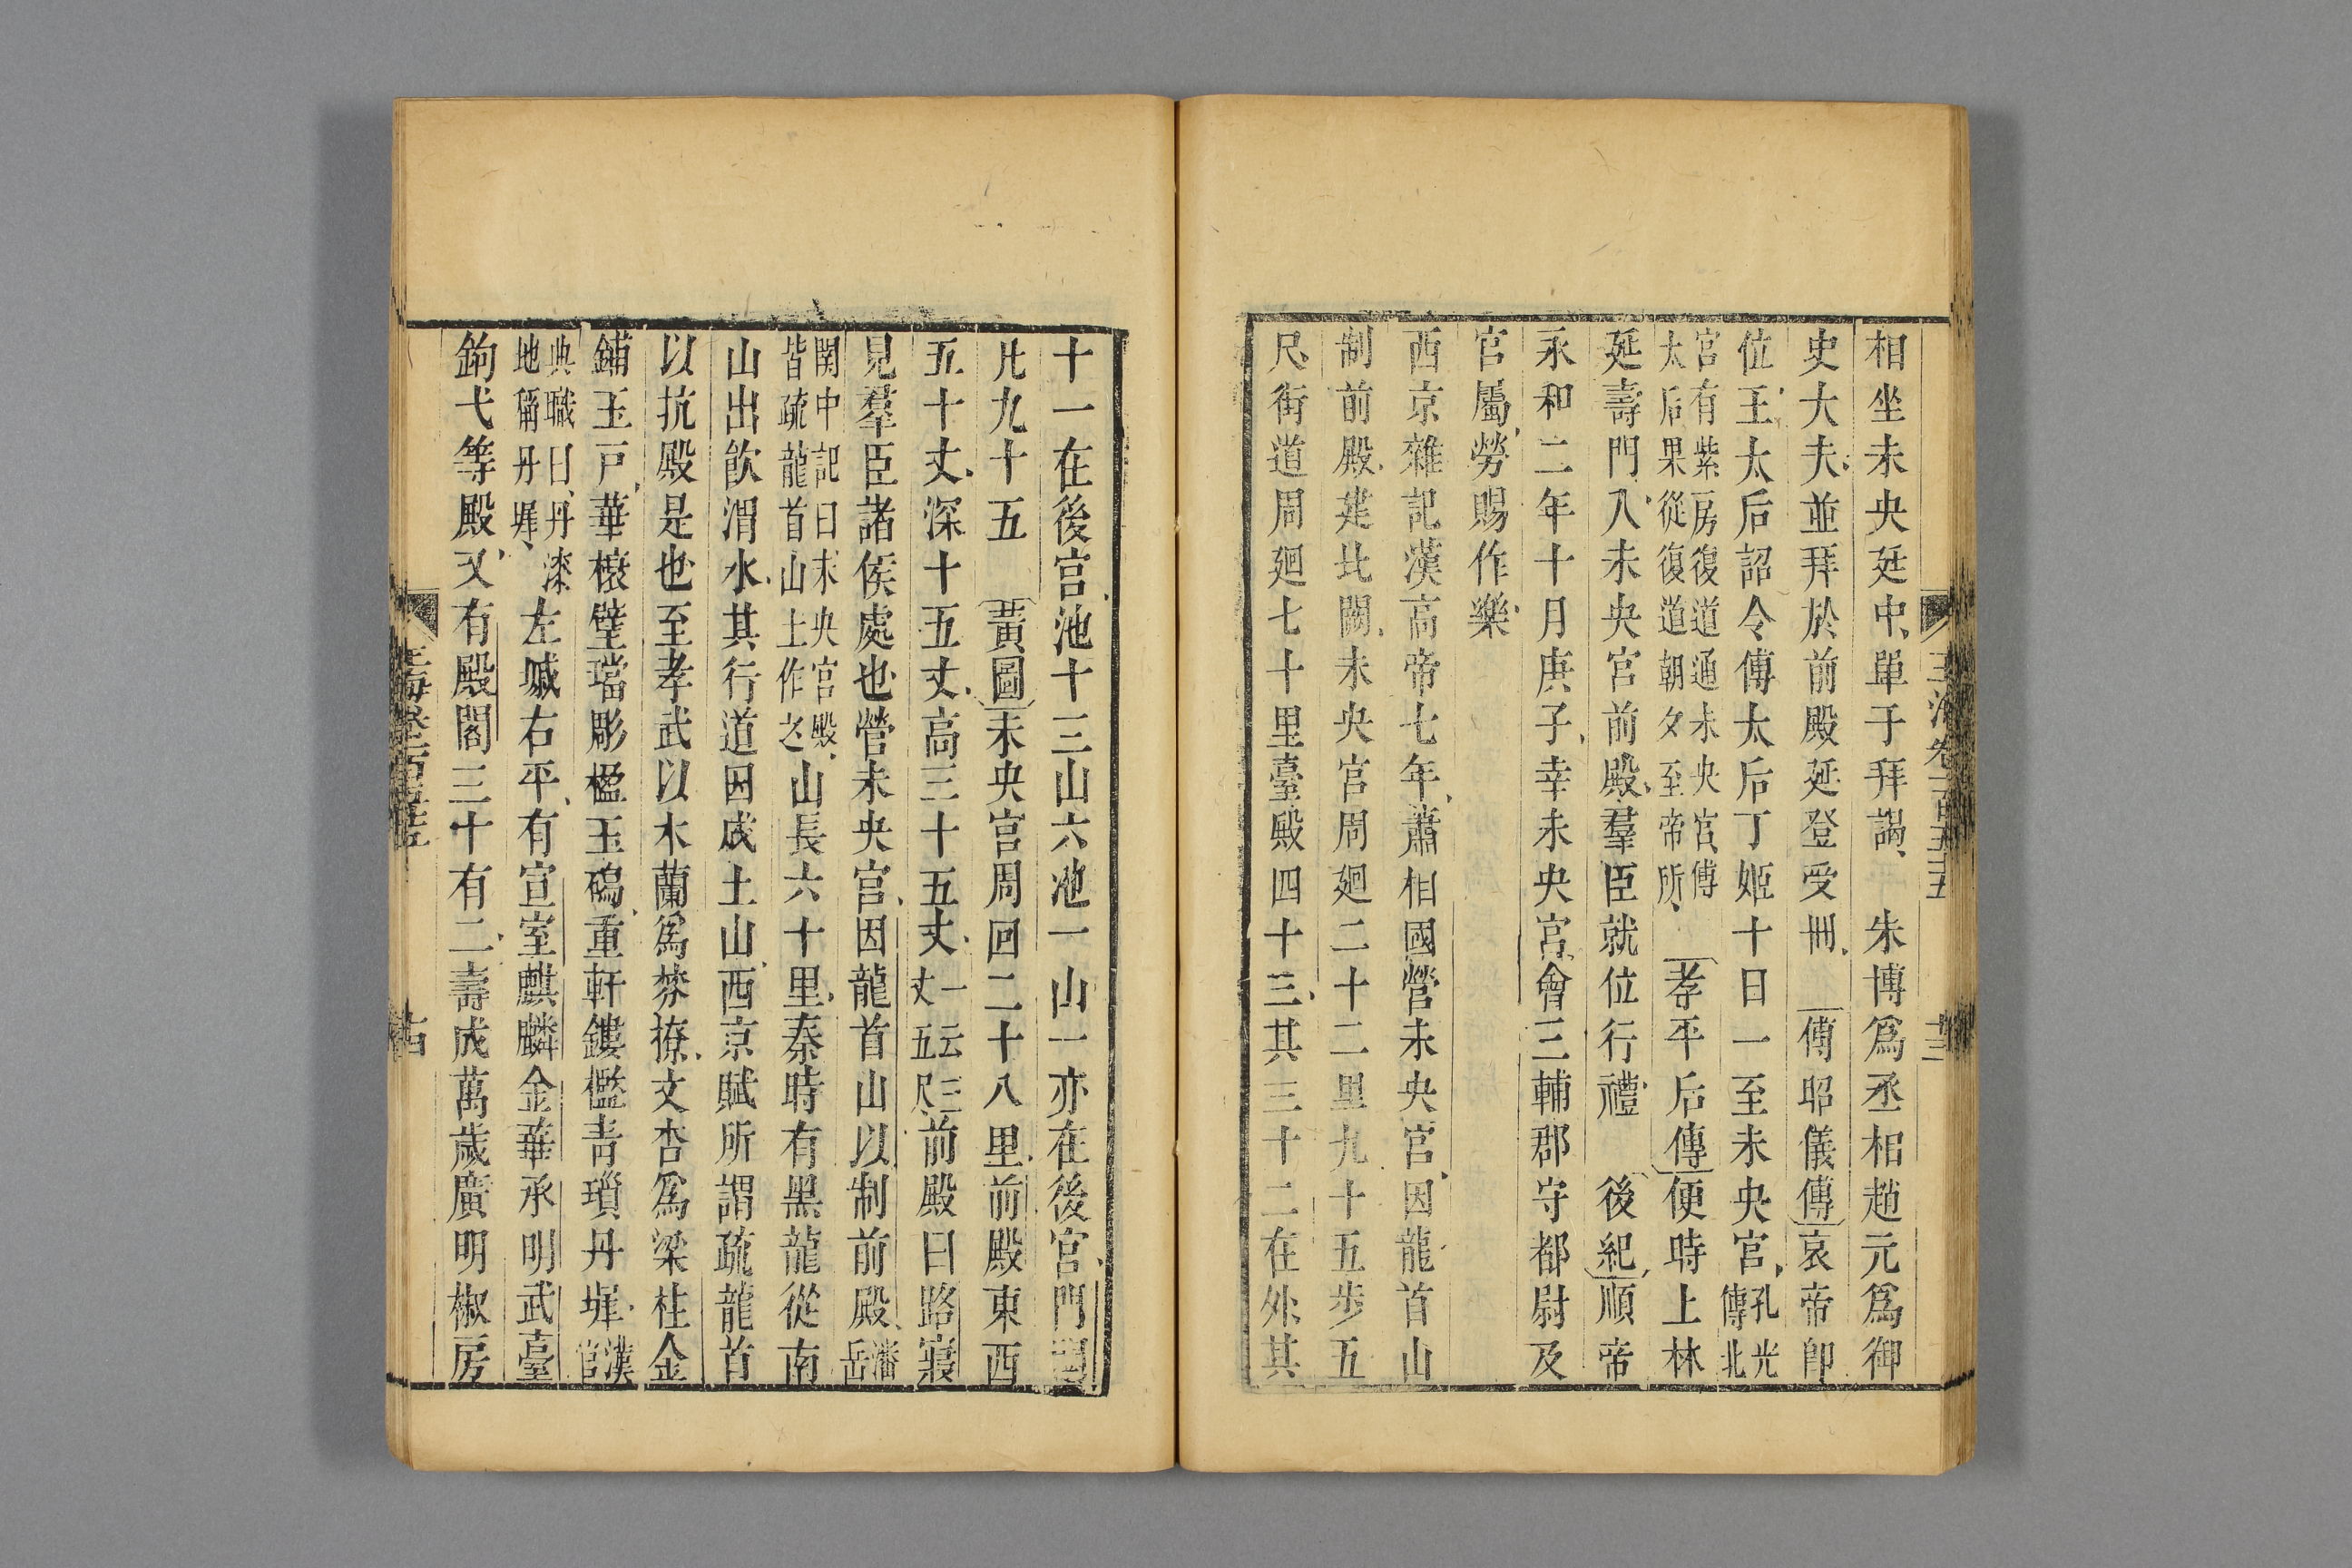 玉海卷一百五十五 十三
相坐未央廷中單于拜謁 朱博爲丞相趙元爲御
史大夫並拜於前殿延登受冊 傅昭儀傳哀帝卽
位王太后詔令傅太后丁姬十日一至未央宮孔光傳北
宮有紫房復道通未央宮傅太后果從復道朝夕至帝所 孝平后傳便時上林
延壽門入未央宮前殿羣臣就位行禮 後紀順帝
永和二年十月庚子幸未央宮會三輔郡守都尉及
官屬勞賜作樂
西京雜記漢高帝七年蕭相國營未央宮因龍首山
制前殿建北闕未央宮周廻二十二里九十五步五
尺街道周廻七十里臺殿四十三其三十二在外其
十一在後宮池十三山六池一山一亦在後宮門闥
凡九十五 黃圖未央宮周回二十八里前殿東西
五十丈深十五丈高三十五丈一云三丈五尺前殿曰路寢
見羣臣諸侯處也營未央宮因龍首山以制前殿潘岳
關中記曰未央宮殿皆疏龍首山土作之山長六十里秦時有黑龍從南
山出飮渭水其行道因成土山西京賦所謂疏龍首
以抗殿是也至孝武以木蘭爲棼橑文杏爲梁柱金
鋪玉戸華榱璧璫彫楹玉磶重軒鏤檻靑瑣丹墀漢官
典職曰丹漆地稱丹墀左墄右平有宣室麒麟金華承明武臺
鉤弋等殿又有殿閣三十有二壽成萬歲廣明椒房
玉海卷一百五十五 十四